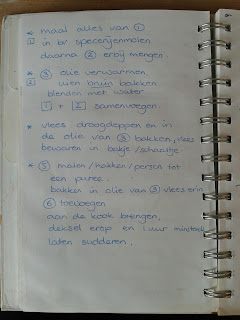 * maal alles van ①
1 in bv specerijenmolen
daarna ② erbij mengen.
* ③ olie verwarmen
2 uien bruin bakken
blenden met water
1 + 2 samenvoegen.
* vlees droogdeppen en in
de olie van ③ bakken, vlees
bewaren in bakje/schaaltje
* ⑤ malen/hakken/persen tot
een puree.
bakken in olie van ③ vlees erin
⑥ toevoegen
aan de kook brengen,
deksel erop en 1 uur
laten sudderen.